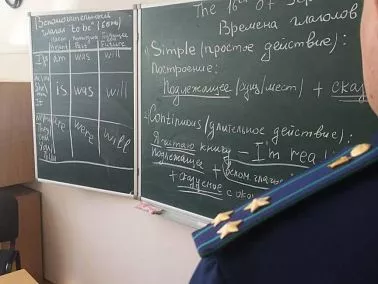 Вспомогательный
глагол "to be" (быть)
Past
Future
I am was will
is was will
It
are were will
They
You
The 16th of Sep
Времена глаголов
Simple (простое действие):
Построение:
Подлежащее (сущ/мест) + сказ
Continuous (длительное действие):
Я читаю книгу – I'm rea
Подлежащее + вспом глагол
+ сказуемое с око